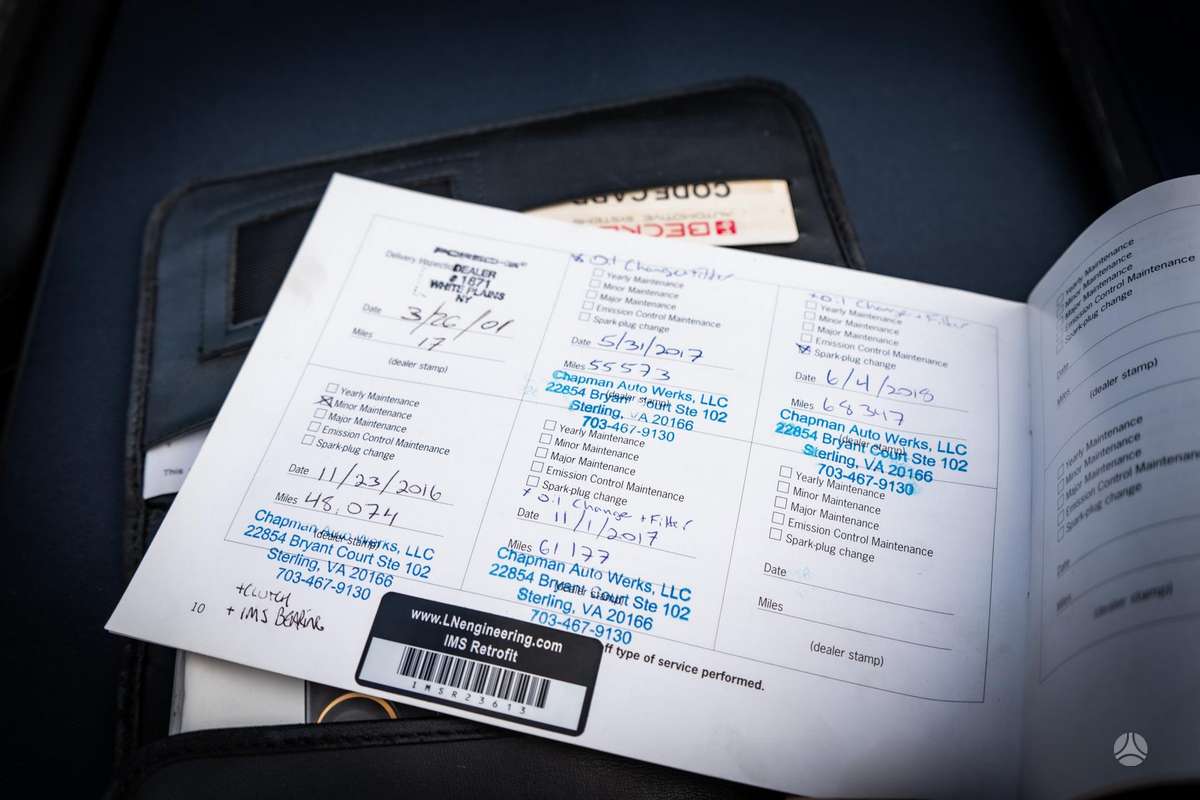 CODECARD
AUTOMOTIVE SYSTEMS
BECKE
This
Delivery Inspection
PORSCHE
DEALER
# 1671
WHITE PLAINS
NY
Date 3/26/01
Miles 17
(dealer stamp)
x Oil Change + Filter
Yearly Maintenance
Minor Maintenance
Major Maintenance
Emission Control Maintenance
Spark-plug change
Date 5/31/2017
Miles 55573
(dealer stamp)
Chapman Auto Werks, LLC
22854 Bryant Court Ste 102
Sterling, VA 20166
703-467-9130
+ Oil Change + Filter
Yearly Maintenance
Minor Maintenance
Major Maintenance
Emission Control Maintenance
x Spark-plug change
Date 6/4/2018
Miles 68347
(dealer stamp)
Chapman Auto Werks, LLC
22854 Bryant Court Ste 102
Sterling, VA 20166
703-467-9130
Yearly Maintenance
x Minor Maintenance
Major Maintenance
Emission Control Maintenance
Spark-plug change
Date 11/23/2016
Miles 48,074
(dealer stamp)
Chapman Auto Werks, LLC
22854 Bryant Court Ste 102
Sterling, VA 20166
703-467-9130
+CLUTCH
+ IMS BEARING
10
Yearly Maintenance
Minor Maintenance
Major Maintenance
Emission Control Maintenance
Spark-plug change
x Oil Change + Filter
Date 11/1/2017
Miles 61177
(dealer stamp)
Chapman Auto Werks, LLC
22854 Bryant Court Ste 102
Sterling, VA 20166
703-467-9130
Yearly Maintenance
Minor Maintenance
Major Maintenance
Emission Control Maintenance
Spark-plug change
Date
Miles
(dealer stamp)
ff type of service performed.
www.LNengineering.com
IMS Retrofit
IMSR23613
Yearly Maintenance
Minor Maintenance
Major Maintenance
Emission Control Maintenance
Spark-plug change
Date
(dealer stamp)
Yearly Maintenance
Minor Maintenance
Major Maintenance
Emission Control Maintenance
Spark-plug change
Date
Miles
(dealer stamp)